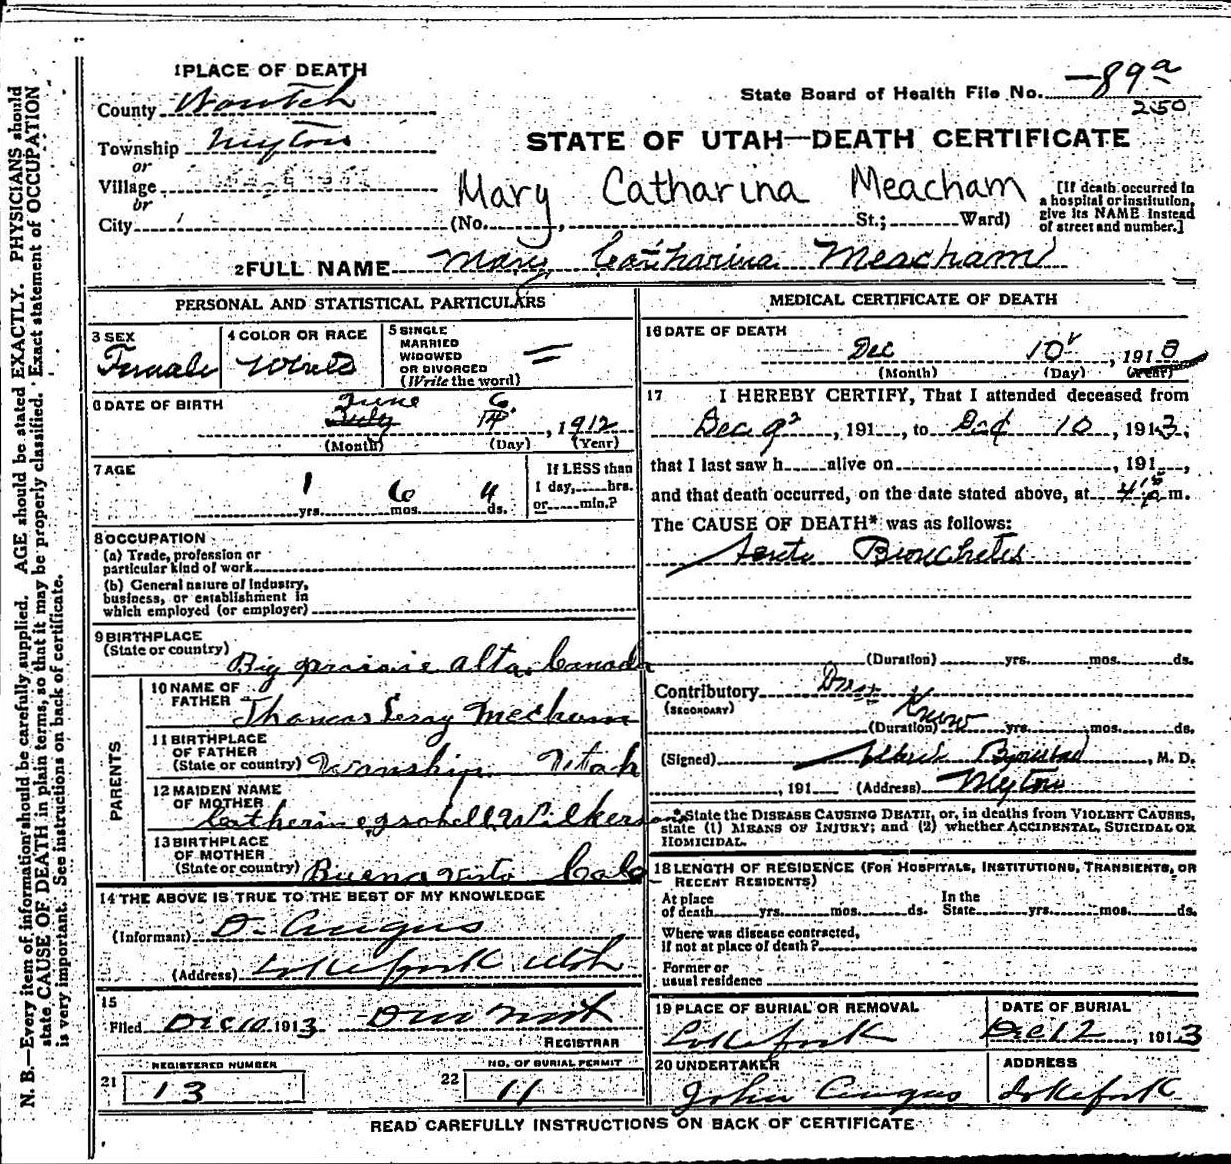 1 PLACE OF DEATH
County
Township Myton
or
Village
or
City
State Board of Health File No. —89a
250
STATE OF UTAH—DEATH CERTIFICATE
Mary Catharina Meacham
(No. , St.; Ward)
[If death occurred in
a hospital or institution,
give its NAME instead
of street and number.]
2 FULL NAME Mary Catharina Meacham
PERSONAL AND STATISTICAL PARTICULARS
3 SEX
Female
4 COLOR OR RACE
White
5 SINGLE
MARRIED
WIDOWED
OR DIVORCED
(Write the word)
6 DATE OF BIRTH
June 6
July 14, 1912
(Month) (Day) (Year)
7 AGE
1 6 4
yrs. mos. ds.
If LESS than
1 day, hrs.
or min.?
8 OCCUPATION
(a) Trade, profession or
particular kind of work
(b) General nature of Industry,
business, or establishment in
which employed (or employer)
9 BIRTHPLACE
(State or country) Big prairie alta. Canada
PARENTS
10 NAME OF
FATHER Thomas Leroy Mecham
11 BIRTHPLACE
OF FATHER
(State or country) Wanship Utah
12 MAIDEN NAME
OF MOTHER
Wilkerson
13 BIRTHPLACE
OF MOTHER
(State or country) Buena Vista Colo
14 THE ABOVE IS TRUE TO THE BEST OF MY KNOWLEDGE
(Informant) D. Angus
(Address) Lakefork Utah
15
Filed Dec 10 1913
REGISTRAR
REGISTERED NUMBER
21 13
NO. OF BURIAL PERMIT
22 11
MEDICAL CERTIFICATE OF DEATH
16 DATE OF DEATH
Dec 10, 1913
(Month) (Day) (Year)
17 I HEREBY CERTIFY, That I attended deceased from
Dec 9, 191 , to Dec 10, 1913,
that I last saw h alive on , 191 ,
and that death occurred, on the date stated above, at m.
The CAUSE OF DEATH* was as follows:
Acute Bronchitis
(Duration) yrs. mos. ds.
Contributory Dont
(SECONDARY)
Know
(Duration) yrs. mos. ds.
(Signed) , M. D.
, 191 (Address) Myton
*State the DISEASE CAUSING DEATH, or, in deaths from VIOLENT CAUSES,
state (1) MEANS OF INJURY; and (2) whether ACCIDENTAL, SUICIDAL OR
HOMICIDAL.
18 LENGTH OF RESIDENCE (FOR HOSPITALS, INSTITUTIONS, TRANSIENTS, OR
RECENT RESIDENTS)
At place
of death yrs. mos. ds.
In the
State yrs. mos. ds.
Where was disease contracted,
if not at place of death?
Former or
usual residence
19 PLACE OF BURIAL OR REMOVAL
Lakefork
DATE OF BURIAL
Dec 12, 1913
20 UNDERTAKER
John Angus
ADDRESS
Lakefork
READ CAREFULLY INSTRUCTIONS ON BACK OF CERTIFICATE
N. B.—Every item of information should be carefully supplied. AGE should be stated EXACTLY. PHYSICIANS should
state CAUSE OF DEATH in plain terms, so that it may be properly classified. Exact statement of OCCUPATION
is very important. See instructions on back of certificate.